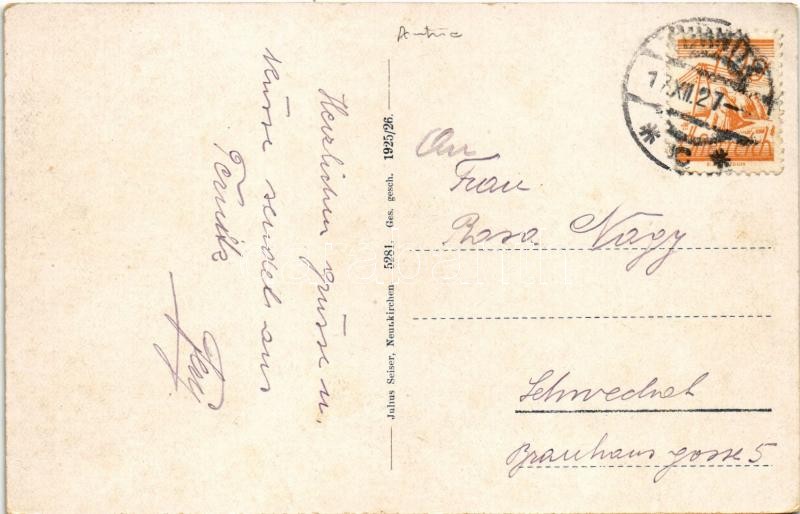 Austria
Herzlichen grüsse u.
Küsse sendet aus
Ternitz
Julius Seiser, Neunkirchen 5281. Ges. gesch. 1925/26.
TERNITZ
17.XII.27
* C *
An
Frau
Rosa Nagy
Schwechat
Brauhausgasse 5